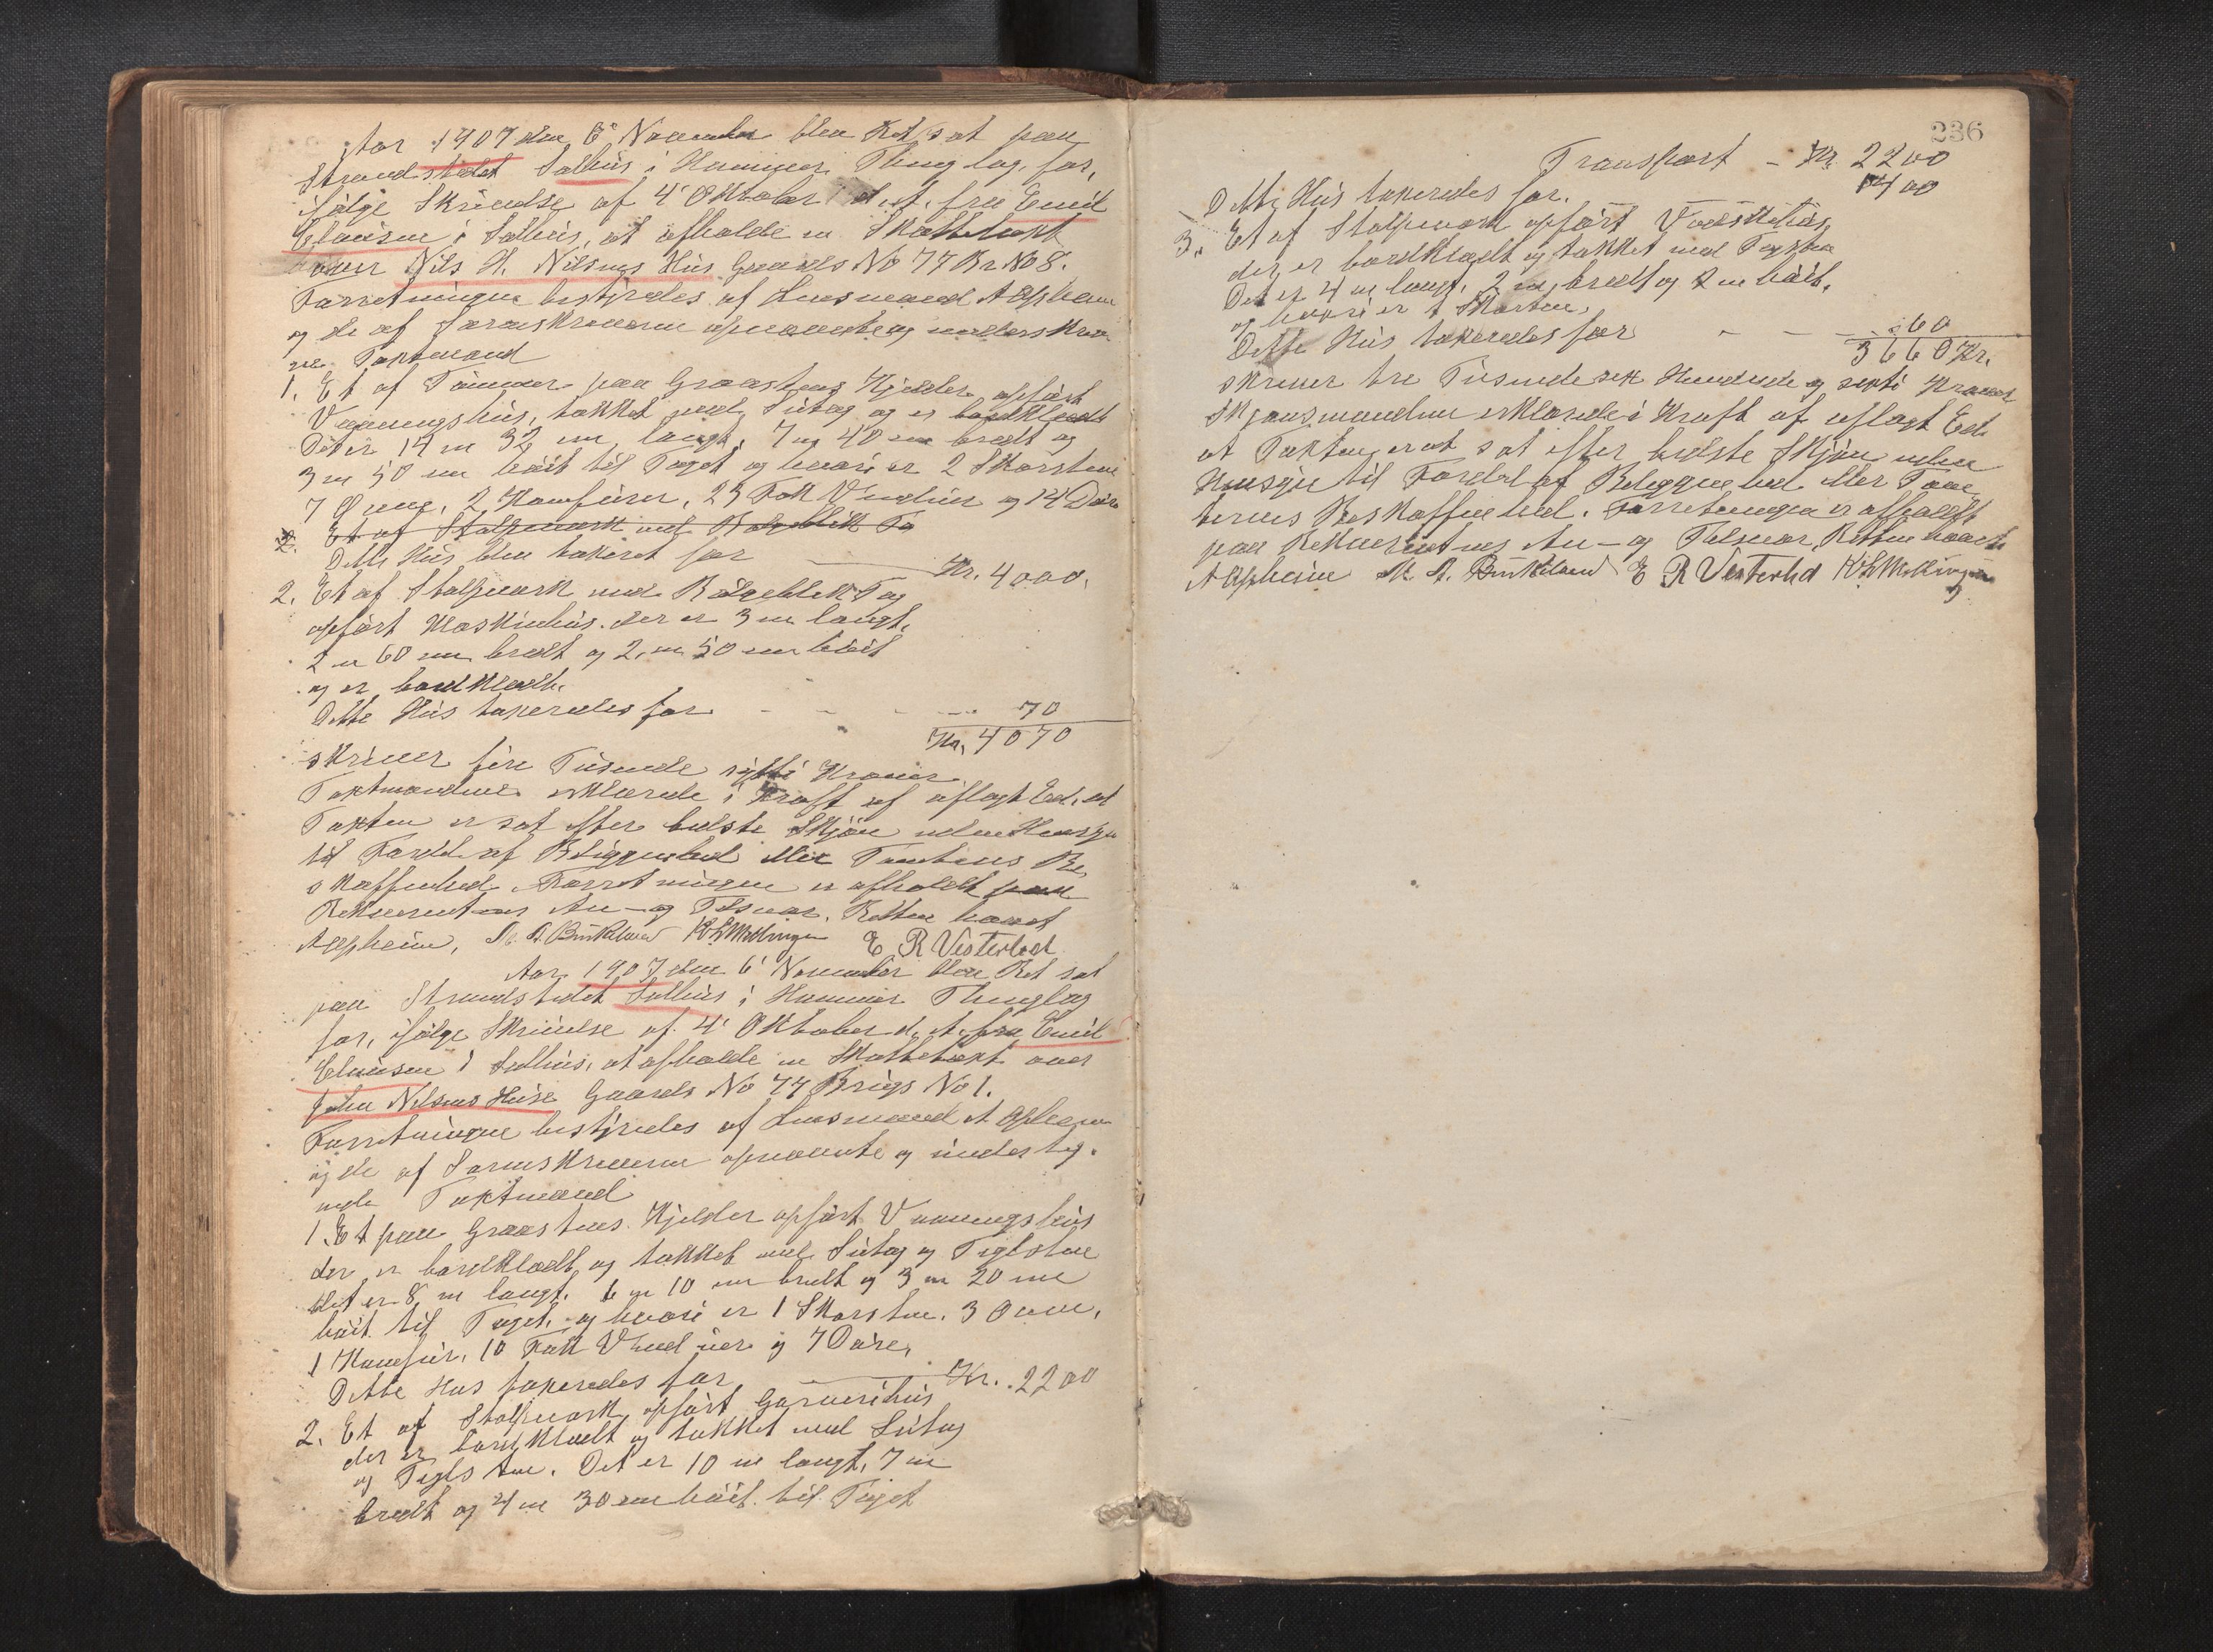 Aar 1907 den 6' November blev Ret sat paa
Strandstedet Salhus i Hammer Thinglag for,
ifølge Skrivelse af 4' Oktober d. A. fra Emil
Clausen i Salhus, at afholde en Skattetaxt
over Nils H. Nilsens Hus Gaards No 77 Br No 8.
Forretningen bestyredes af Lensmand A Opheim
og de af Sorenskriveren opnævnte og underskrev
ne Taxtmænd
1. Et af Tømmer paa Graastens Kjelder opført
Vaaningshus, takket med Sutag og er bordklædt
Det er 14 m 32 cm langt, 7 m 40 cm bredt og
3 m 50 cm høit til Taget og hvori er 2 Skorstene
7 Ovne, 2 Komfurer, 23 Fak Vinduer og 14 Døre
2. Et af Stolpeverk med Bølgeblik Ta
Dette Hus blev taxeret for Kr. 4000.
2. Et af Stolpeverk med Bølgeblik Tag
opført Maskinhus. der er 3 m langt,
2 m 60 cm bredt og 2 m 50 cm høit
og er bordklædt.
Dette Hus taxeredes for - - - - 70
Kr. 4070
skriver fire Tusende sytti Kroner
Taxtmændene erklærede i Kraft af aflagt Ed, at
Taxten er sat efter bedste Skjøn uden Hensyn
til Fordel af Beliggenhed eller Tomtens Be
skaffenhed. Forretningen er afholdt paa
Rekvirentens An- og Tilsvar. Retten hævet
A Opheim, M. A. Birkeland E R Vesterlid
Aar 1907 den 6' November blev Ret sat
paa Strandstedet Salhus i Hammer Thinglag
for, ifølge Skrivelse af 4' Oktober d. A. fra Emil
Clausen i Salhus, at afholde en Skattetaxt over
John Nilsens Huse Gaards No 77 Brugs No 1.
Forretningen bestyredes af Lensmand A Opheim
og de af Sorenskriveren opnævnte og underteg-
nede Taxtmænd
1. Et paa Graastens Kjelder opført Vaaningshus
der er bordklædt og takket med Sutag og Teglstene
Det er 8 m langt. 6 m 10 cm bredt og 3 m 20 cm
høit til Taget, og hvori er 1 Skorsten. 3 Ovne,
1 Komfur, 10 Fak Vinduer og 7 Døre,
Dette Hus taxeredes for Kr. 2200
2. Et af Stolpeverk opført Garverihus
der er bordklædt og takket med Sutag
og Teglstene. Det er 10 m langt, 7 m
bredt og 4 m 30 cm høit til Taget
236
Transport - Kr. 2200
Dette Hus taxeredes for. 1400
3. Et af Stolpeverk opført Vaskehus,
der er bordklædt og takket med Teglsten
Det er 4 m langt, 2 m bredt og 2 m høit,
og hvori er 1 Skorsten,
Dette Hus taxeredes for - - - 60
3660 Kr.
skriver tre Tusende sex Hundrede og sexti Kroner
Skjønsmændene erklærede i Kraft af aflagt Ed
at Taxten er at sat efter bedste Skjøn uden
Hensyn til Fordel af Beliggenhed eller Tom
ternes Beskaffenhed. Forretningen er afholdt
paa Rekvirentens An- og Tilsvar, Retten hævet
A Opheim M. A. Birkeland E R Vesterlid